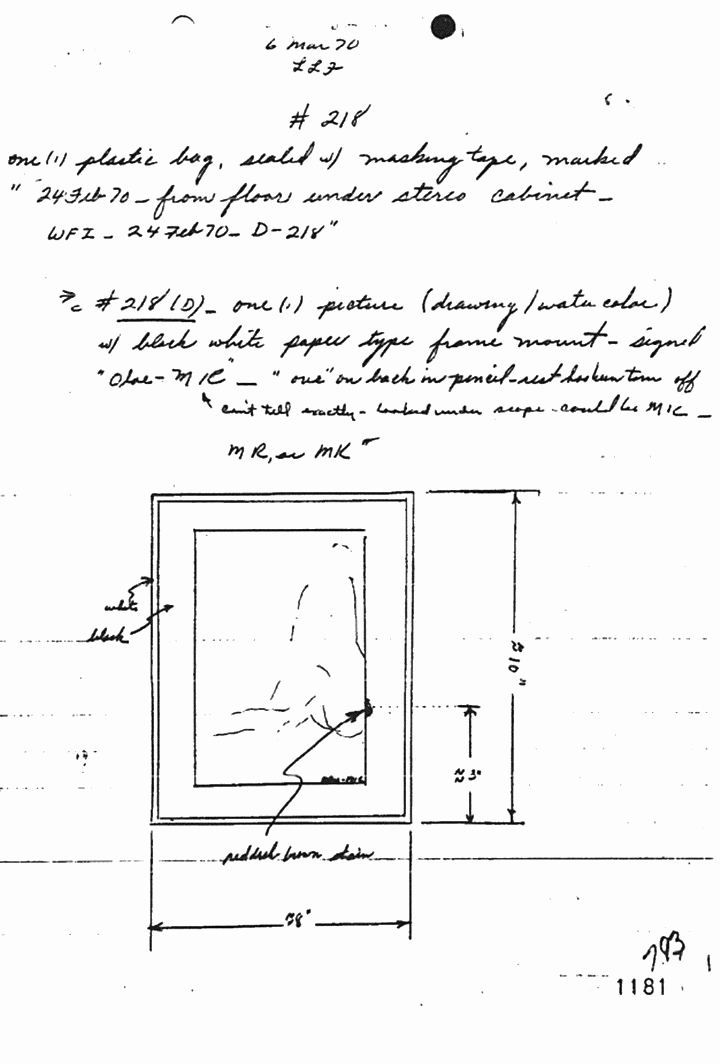 6 Mar 70
LLF
# 218
one (1) plastic bag, sealed w/ masking tape, marked
" 24 Feb 70 - from floor under stereo cabinet -
WFI - 24 Feb 70 - D-218"
# 218 (D) - one (1) picture (drawing / water color)
w/ black white paper type frame mount - signed
" - MIC" - " one" on back in pencil - rest has been torn off
can't tell exactly - looked under scope - could be MIC -
MR, or MK "
white
black
≈ 10"
≈ 3"
reddish brown stain
≈ 8"
1181